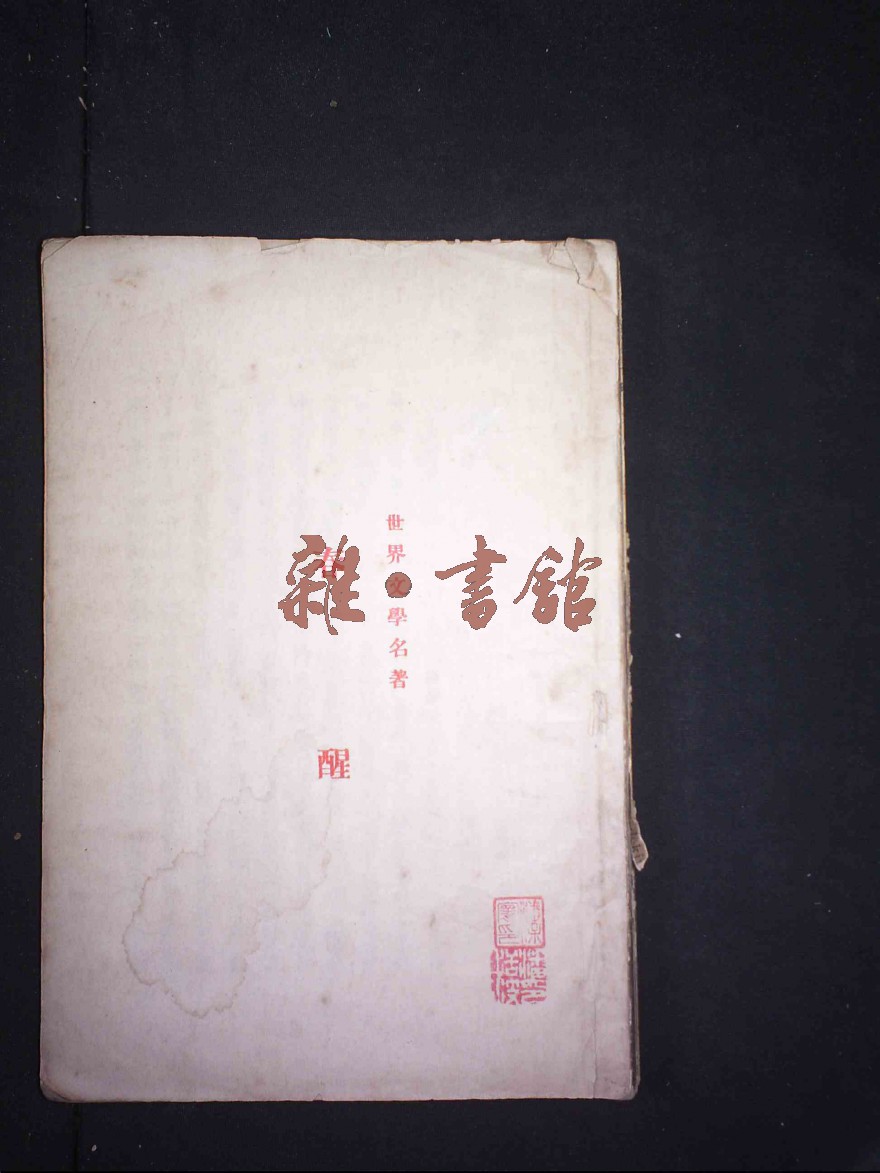 世界文學名著
春醒
雜·書舘